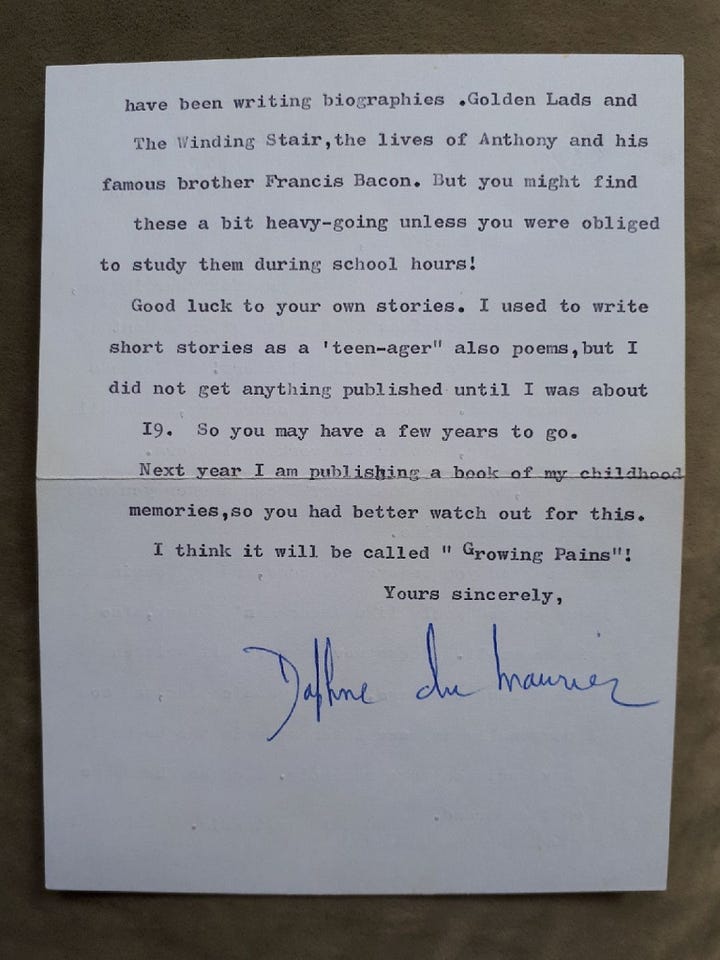 have been writing biographies .Golden Lads and
The Winding Stair,the lives of Anthony and his
famous brother Francis Bacon. But you might find
these a bit heavy-going unless you were obliged
to study them during school hours!
Good luck to your own stories. I used to write
short stories as a 'teen-ager" also poems,but I
did not get anything published until I was about
I9. So you may have a few years to go.
Next year I am publishing a book of my childhood
memories,so you had better watch out for this.
I think it will be called " Growing Pains"!
Yours sincerely,
Daphne du Maurier